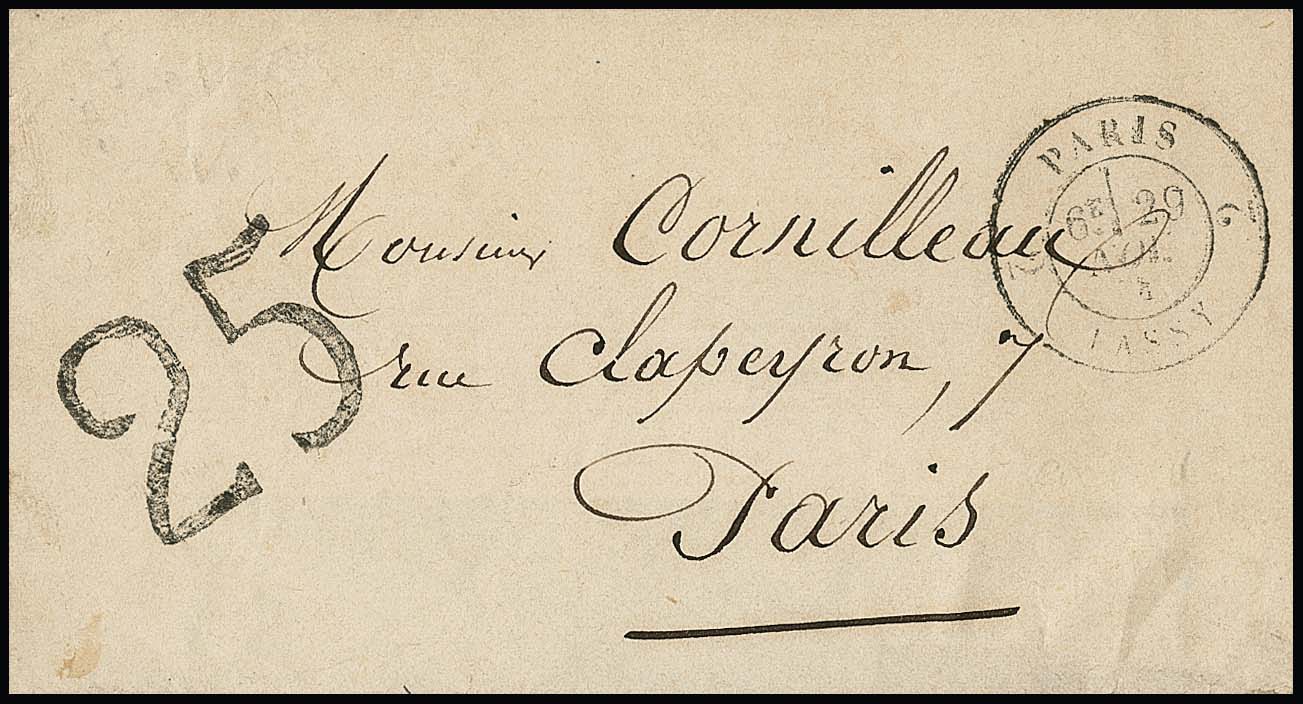 PARIS
6E 29
NOV.
PASSY
25
Monsieur Cornilleau
rue Clapeyron, 7
Paris